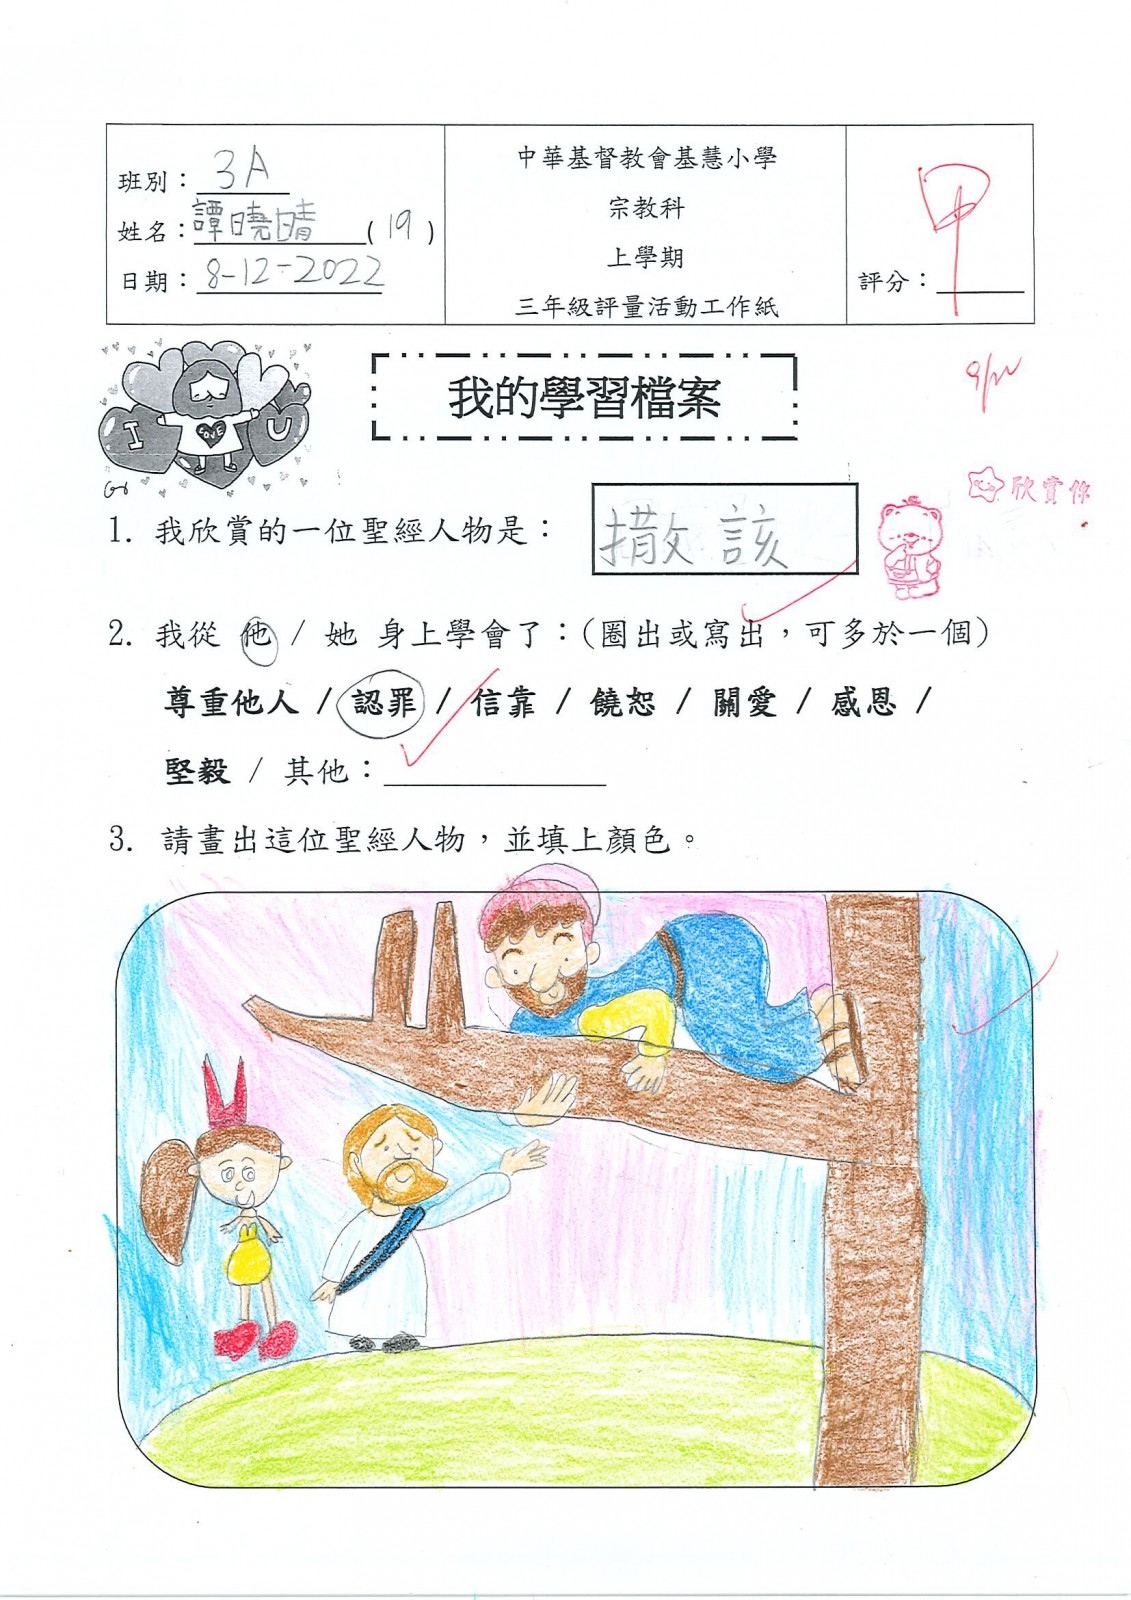 班別：3A
姓名：譚曉晴 (19)
日期：8-12-2022
中華基督教會基慧小學
宗教科
上學期
三年級評量活動工作紙
評分：甲
9/12
I LOVE U
我的學習檔案
欣賞你
1. 我欣賞的一位聖經人物是：撒該
2. 我從 他 / 她 身上學會了：(圈出或寫出，可多於一個)
尊重他人 / 認罪 / 信靠 / 饒恕 / 關愛 / 感恩 /
堅毅 / 其他：
3. 請畫出這位聖經人物，並填上顏色。